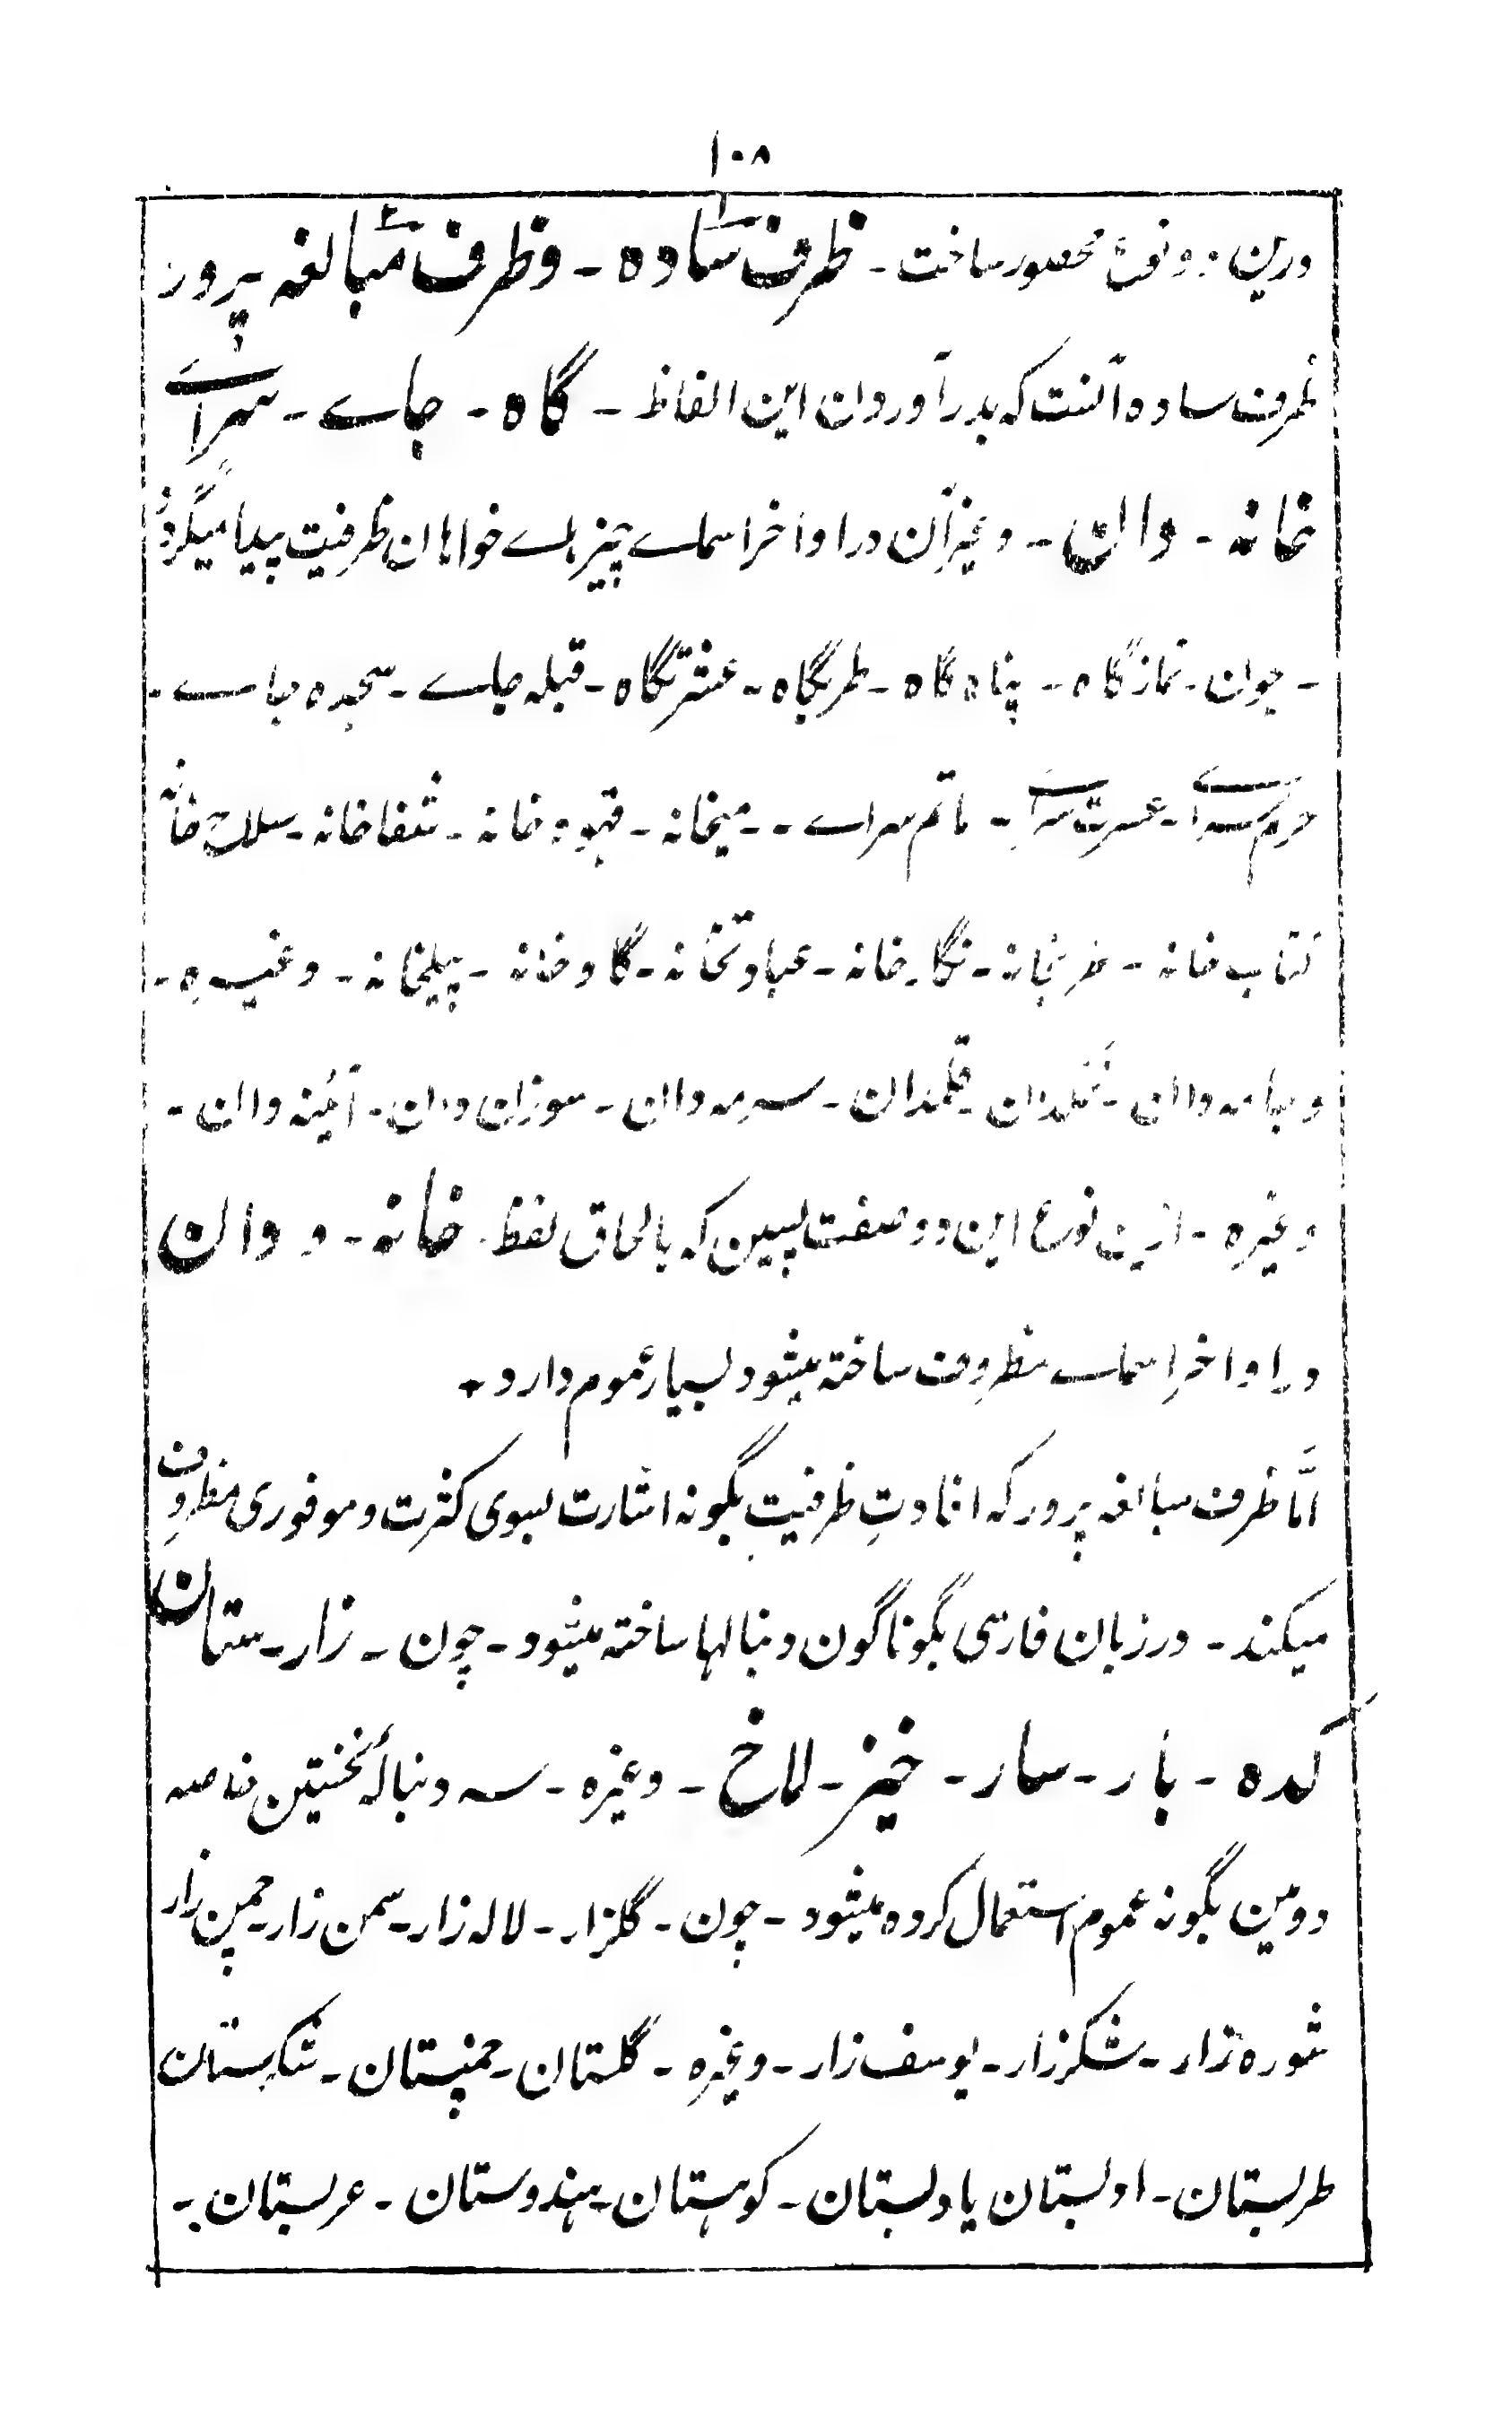 ۱۰۸
درین دو نوع محصور ساخت - ظرف ساده - و ظرف مبالغه پرور
ظرف ساده آنست که بدر آوردن این الفاظ - گاه - جاے - سراے
خانه - دان - و غیر آن در اواخر اسماے چیزہاے خواہان ظرفیت پیدا میگردد
- چون - نمازگاه - پناه گاه - طربگاه - عشرتگاه - قبله جاے - سجده جاے -
حرم سراے - عشرت سراے - ماتم سراے - - میخانه - قہوه خانه - شفاخانه - سلاح خانه
کتاب خانه - خانه - نگارخانه - عبادتخانه - گاوخانه - پیلخانه - وغیره -
و جامه دان - نمکدان - قلمدان - سرمه دان - سوزن دان - آئینه دان -
وغیره - ازین نوع این دو صفت پسین که بالحاق لفظ خانه - و دان
در اواخر اسماے مظروف ساخته میشود بسیار عموم دارد +
امّا ظرف مبالغه پرور که افادتِ ظرفیت بگونه اشارت بسوی کثرت و موفوری مظروف
میکند - در زبان فارسی بگوناگون دنبالہا ساخته میشود - چون - زار - ستان
کده - بار - سار - خیز - لاخ - وغیره - سه دنبالۂ نخستین خاصه
دومین بگونه عموم استعمال کرده میشود - چون - گلزار - لاله زار - سمن زار - چمن زار
شوره زار - شکرزار - یوسف زار - وغیره - گلستان - چمنستان - شکرستان
طربستان - ادبستان یا دبستان - کوہستان - ہندوستان - عربستان -